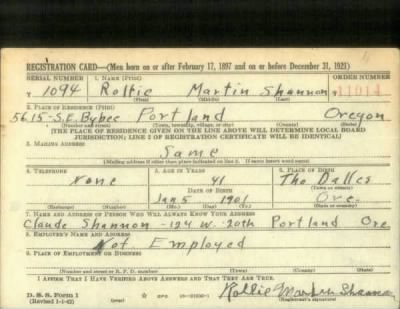 REGISTRATION CARD—(Men born on or after February 17, 1897 and on or before December 31, 1921)
SERIAL NUMBER 1. NAME (Print) ORDER NUMBER
1094 Rollie Martin Shannon 11014
(First) (Middle) (Last)
2. PLACE OF RESIDENCE (Print)
5615-S.E. Bybee Portland Oregon
(Number and street) (Town, township, village, or city) (County) (State)
[THE PLACE OF RESIDENCE GIVEN ON THE LINE ABOVE WILL DETERMINE LOCAL BOARD
JURISDICTION; LINE 2 OF REGISTRATION CERTIFICATE WILL BE IDENTICAL]
3. MAILING ADDRESS
Same
(Mailing address if other than place indicated on line 2. If same insert word same)
4. TELEPHONE 5. AGE IN YEARS 6. PLACE OF BIRTH
None 41 The Dalles
DATE OF BIRTH
Jan 5 1901 Ore.
(Mo.) (Day) (Yr.)
7. NAME AND ADDRESS OF PERSON WHO WILL ALWAYS KNOW YOUR ADDRESS
Claude Shannon - 124 W. 20th Portland Ore
8. EMPLOYER'S NAME AND ADDRESS
Not Employed
9. PLACE OF EMPLOYMENT OR BUSINESS
(Number and street or R. F. D. number) (Town) (County) (State)
I AFFIRM THAT I HAVE VERIFIED ABOVE ANSWERS AND THAT THEY ARE TRUE.
D. S. S. Form 1
(Revised 1-1-42) GPO Rollie Martin Shannon
(Registrant's signature)